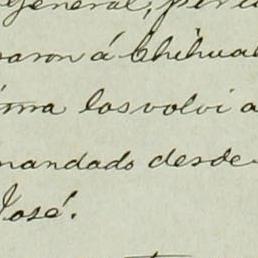 general, per
saron á Chihua
ima los volvi a
mandado desde
José.